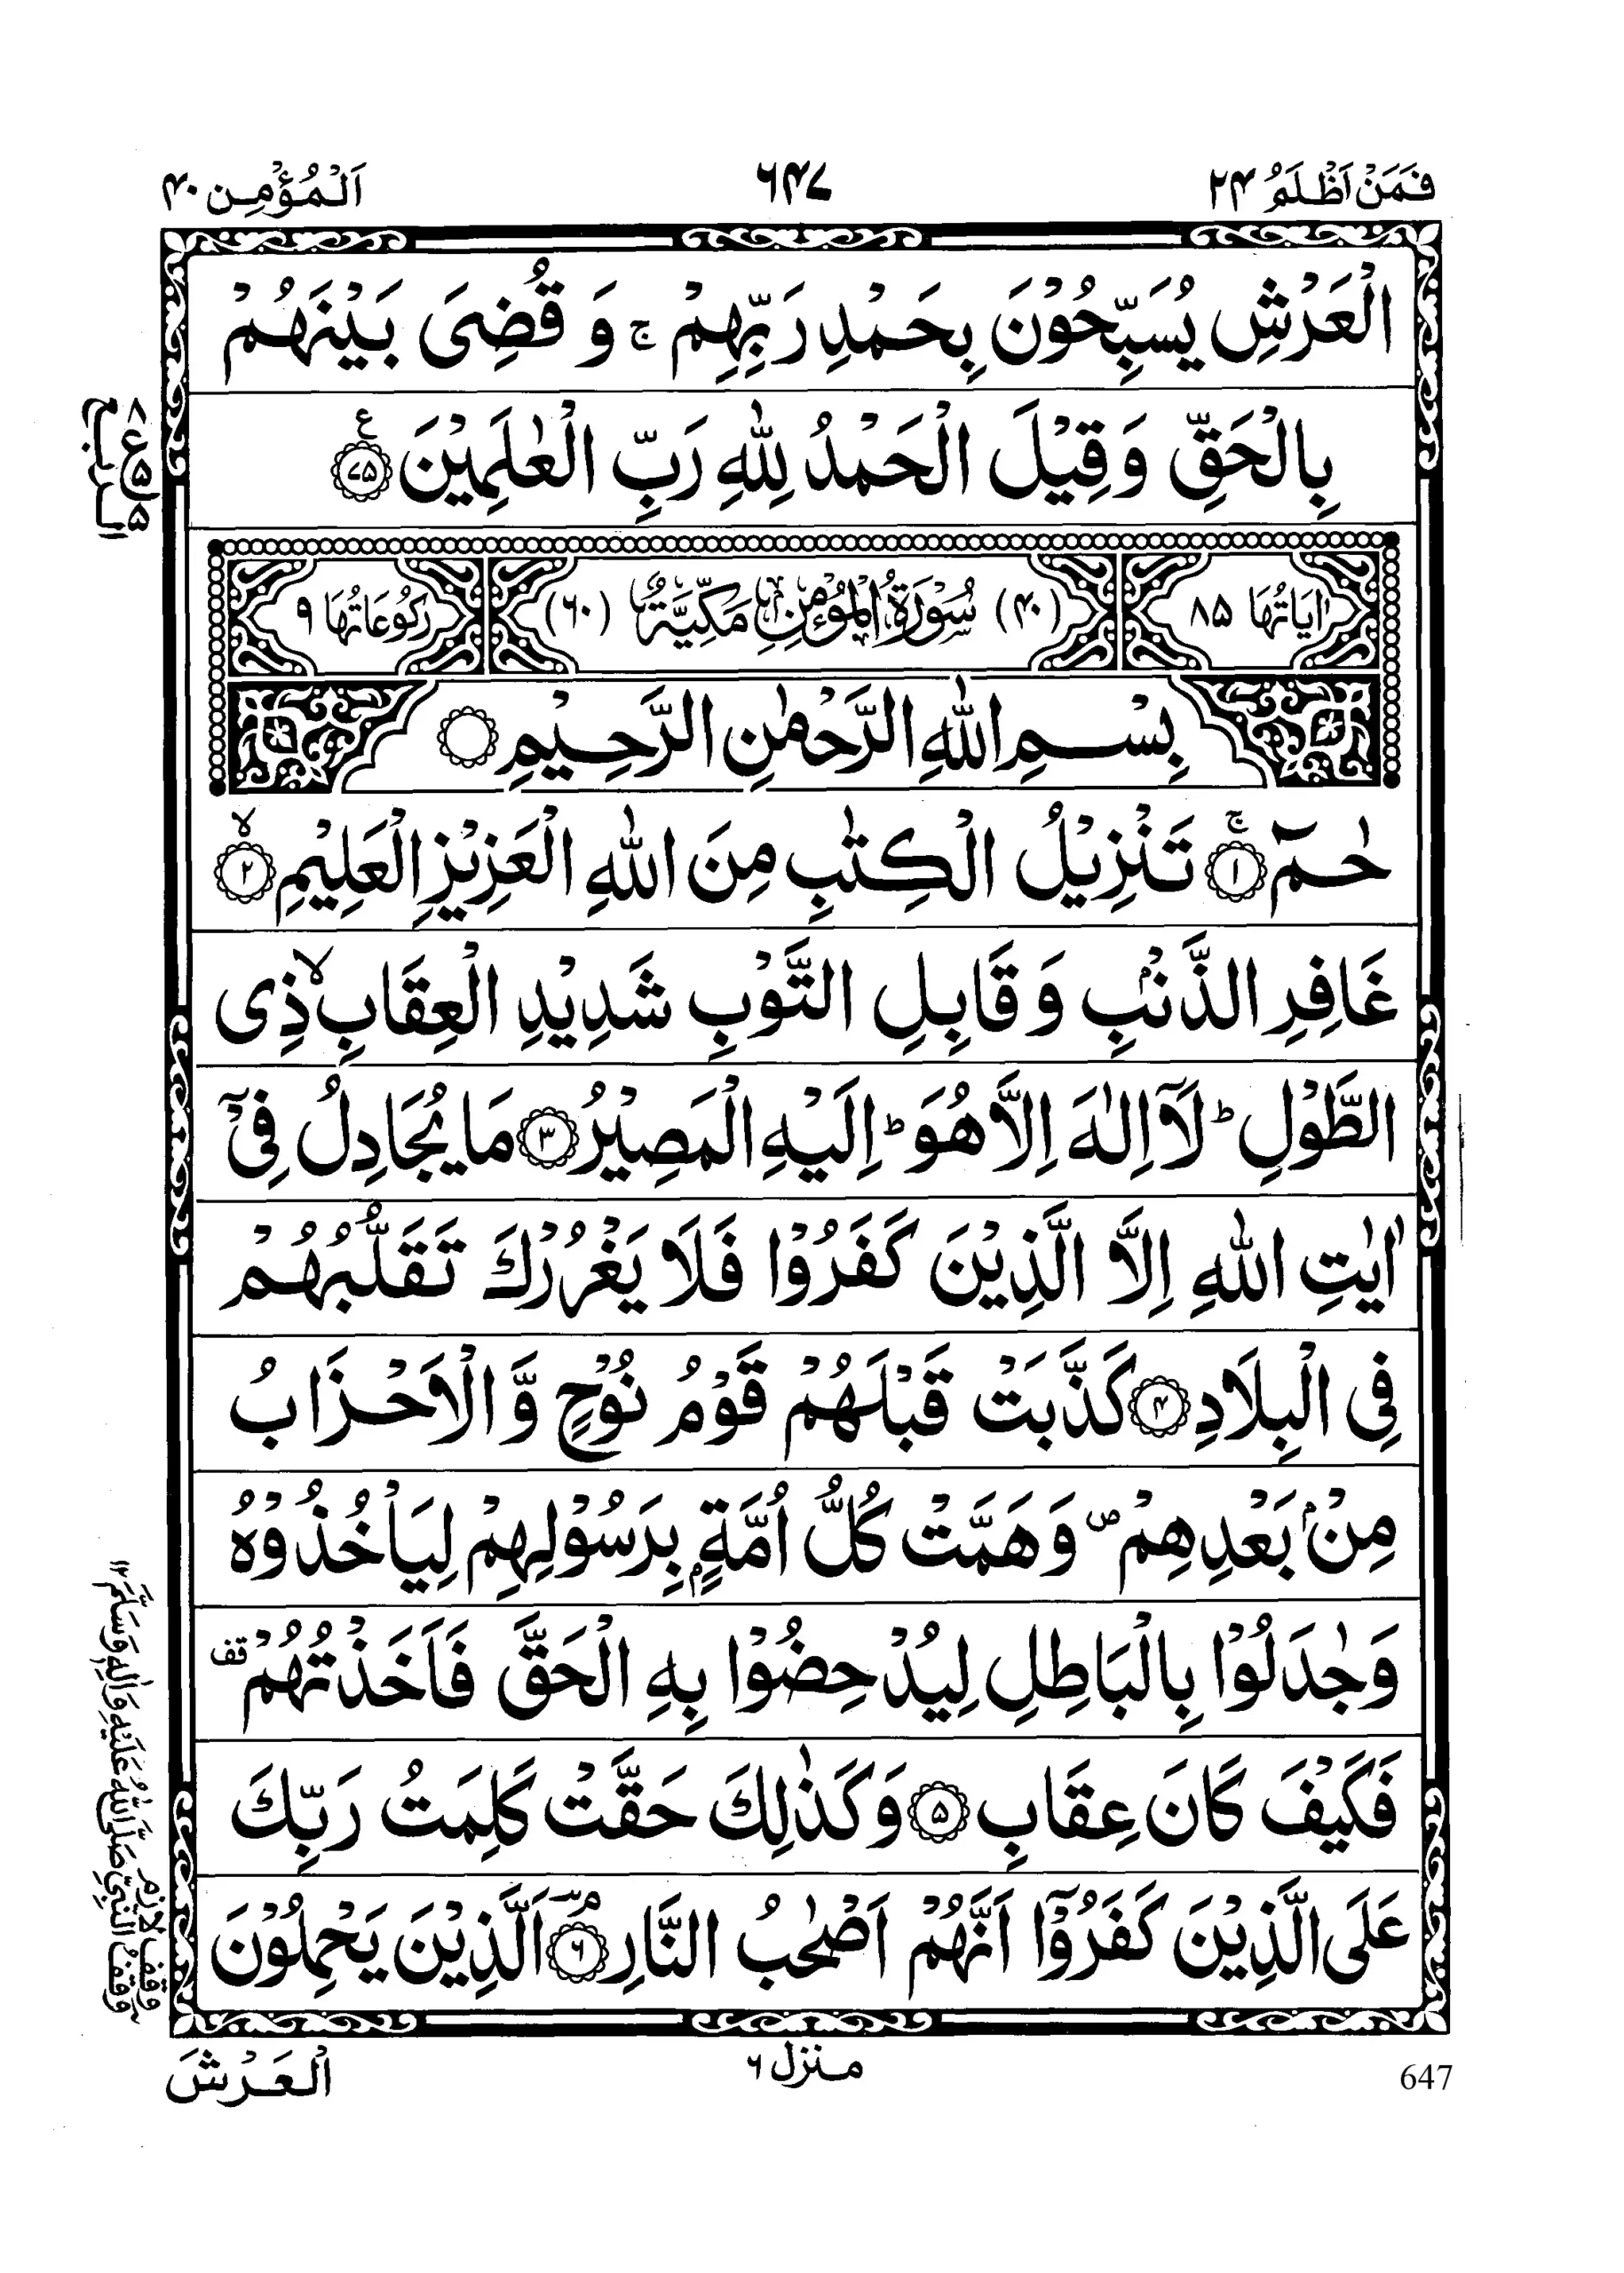 فَمَنْ اَظْلَمُ ۲۴
۶۴۷
اَلْمُؤْمِن ۴۰
الْعَرْشِ يُسَبِّحُوْنَ بِحَمْدِ رَبِّهِمْ ۚ وَ قُضِیَ بَيْنَهُمْ
بِالْحَقِّ وَ قِيْلَ الْحَمْدُ لِلّٰهِ رَبِّ الْعٰلَمِيْنَ ﴿۷۵﴾ ع
۸ ع ۵ ۵
الربع
اٰيَاتُهَا ۸۵
(۴۰) سُوْرَةُ الْمُؤْمِنِ مَكِّيَّةٌ (۶۰)
رُكُوْعَاتُهَا ۹
بِسْمِ اللّٰهِ الرَّحْمٰنِ الرَّحِيْمِ
حٰمٓ ﴿۱﴾ۚ تَنْزِيْلُ الْكِتٰبِ مِنَ اللّٰهِ الْعَزِيْزِ الْعَلِيْمِ ﴿۲﴾ۙ
غَافِرِ الذَّنْۢبِ وَ قَابِلِ التَّوْبِ شَدِيْدِ الْعِقَابِ ۙ ذِی
الطَّوْلِ ؕ لَاۤ اِلٰهَ اِلَّا هُوَ ؕ اِلَيْهِ الْمَصِيْرُ ﴿۳﴾ مَا يُجَادِلُ فِیْۤ
اٰيٰتِ اللّٰهِ اِلَّا الَّذِيْنَ كَفَرُوْا فَلَا يَغْرُرْكَ تَقَلُّبُهُمْ
فِی الْبِلَادِ ﴿۴﴾ كَذَّبَتْ قَبْلَهُمْ قَوْمُ نُوْحٍ وَّ الْاَحْزَابُ
مِنْۢ بَعْدِهِمْ ۪ وَ هَمَّتْ كُلُّ اُمَّةٍۭ بِرَسُوْلِهِمْ لِيَاْخُذُوْهُ
وَ جٰدَلُوْا بِالْبَاطِلِ لِيُدْحِضُوْا بِهِ الْحَقَّ فَاَخَذْتُهُمْ قف
فَكَيْفَ كَانَ عِقَابِ ﴿۵﴾ وَ كَذٰلِكَ حَقَّتْ كَلِمَتُ رَبِّكَ
عَلَی الَّذِيْنَ كَفَرُوْۤا اَنَّهُمْ اَصْحٰبُ النَّارِ ﴿۶﴾ۘ اَلَّذِيْنَ يَحْمِلُوْنَ
وقف لازم
وقف النبی صَلَّی اللّٰهُ عَلَيْهِ وَاٰلِهٖ وَسَلَّمَ ۱۲
الْعَرْشَ
منزل ۶
647